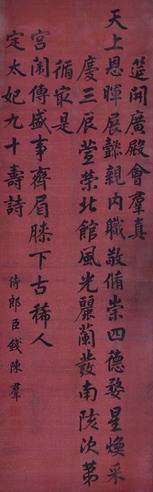 筵開廣殿會羣真
天上恩暉展懿親内職敬脩崇四德婺星煥采
慶三辰萱榮北館風光麗蘭發南陔次第
循冣是
宮闈傳盛事齊眉膝下古稀人
定太妃九十壽詩
侍郎臣錢陳羣